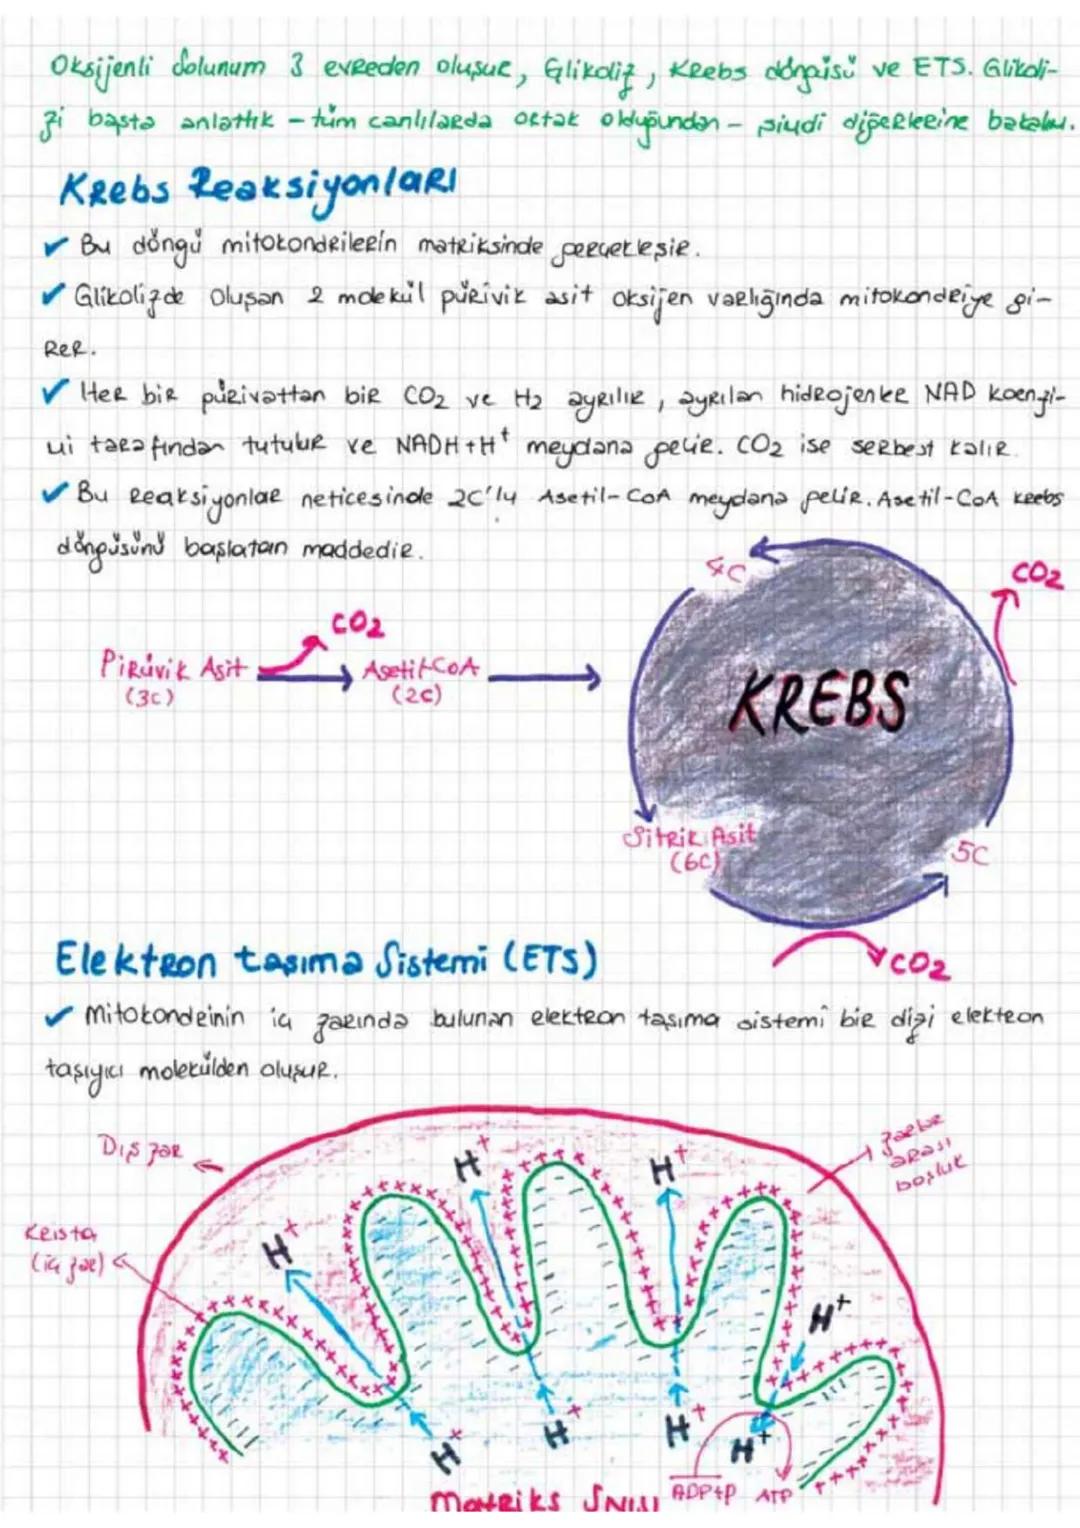 Oksijenli Solunum 3 evreden oluşur, Glikoliz, Krebs döngüsü ve ETS. Glikoli-
zi başta anlattık - tüm canlılarda ortak olduğundan - şimdi diğerlerine bakalım.
Krebs Reaksiyonları
✓ Bu döngü mitokondrilerin matriksinde gerçekleşir.
✓ Glikolizde oluşan 2 molekül pürivik asit oksijen varlığında mitokondriye gi-
rer.
✓ Her bir pürivattan bir CO2 ve H2 ayrılır, ayrılan hidrojenler NAD koenzi-
mi tarafından tutulur ve NADH+H+ meydana gelir. CO2 ise serbest kalır.
✓ Bu Reaksiyonlar neticesinde 2C'lu Asetil-CoA meydana gelir. Asetil-CoA krebs
döngüsünü başlatan maddedir.
4C
CO2
CO2
Pirüvik Asit
(3C)
Asetil-CoA
(2C)
KREBS
Sitrik Asit
(6C)
5C
CO2
Elektron taşıma Sistemi (ETS)
✓ Mitokondrinin iç zarında bulunan elektron taşıma sistemi bir dizi elektron
taşıyıcı molekülden oluşur.
Dış zar
zarlar
arası
boşluk
Krista
(iç zar)
H+
H+
H+
H+
H+
H+
H+
H+
ADP+P
ATP
Matriks SNISI